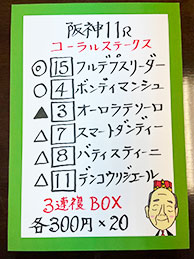 阪神11R
コーラルステークス
◎15フルデプスリーダー
○4ボンディマンシュ
▲3オーロラテソーロ
△7スマートダンディー
△8バティスティーニ
△11デンコウリジエール
3連複BOX
各300円×20